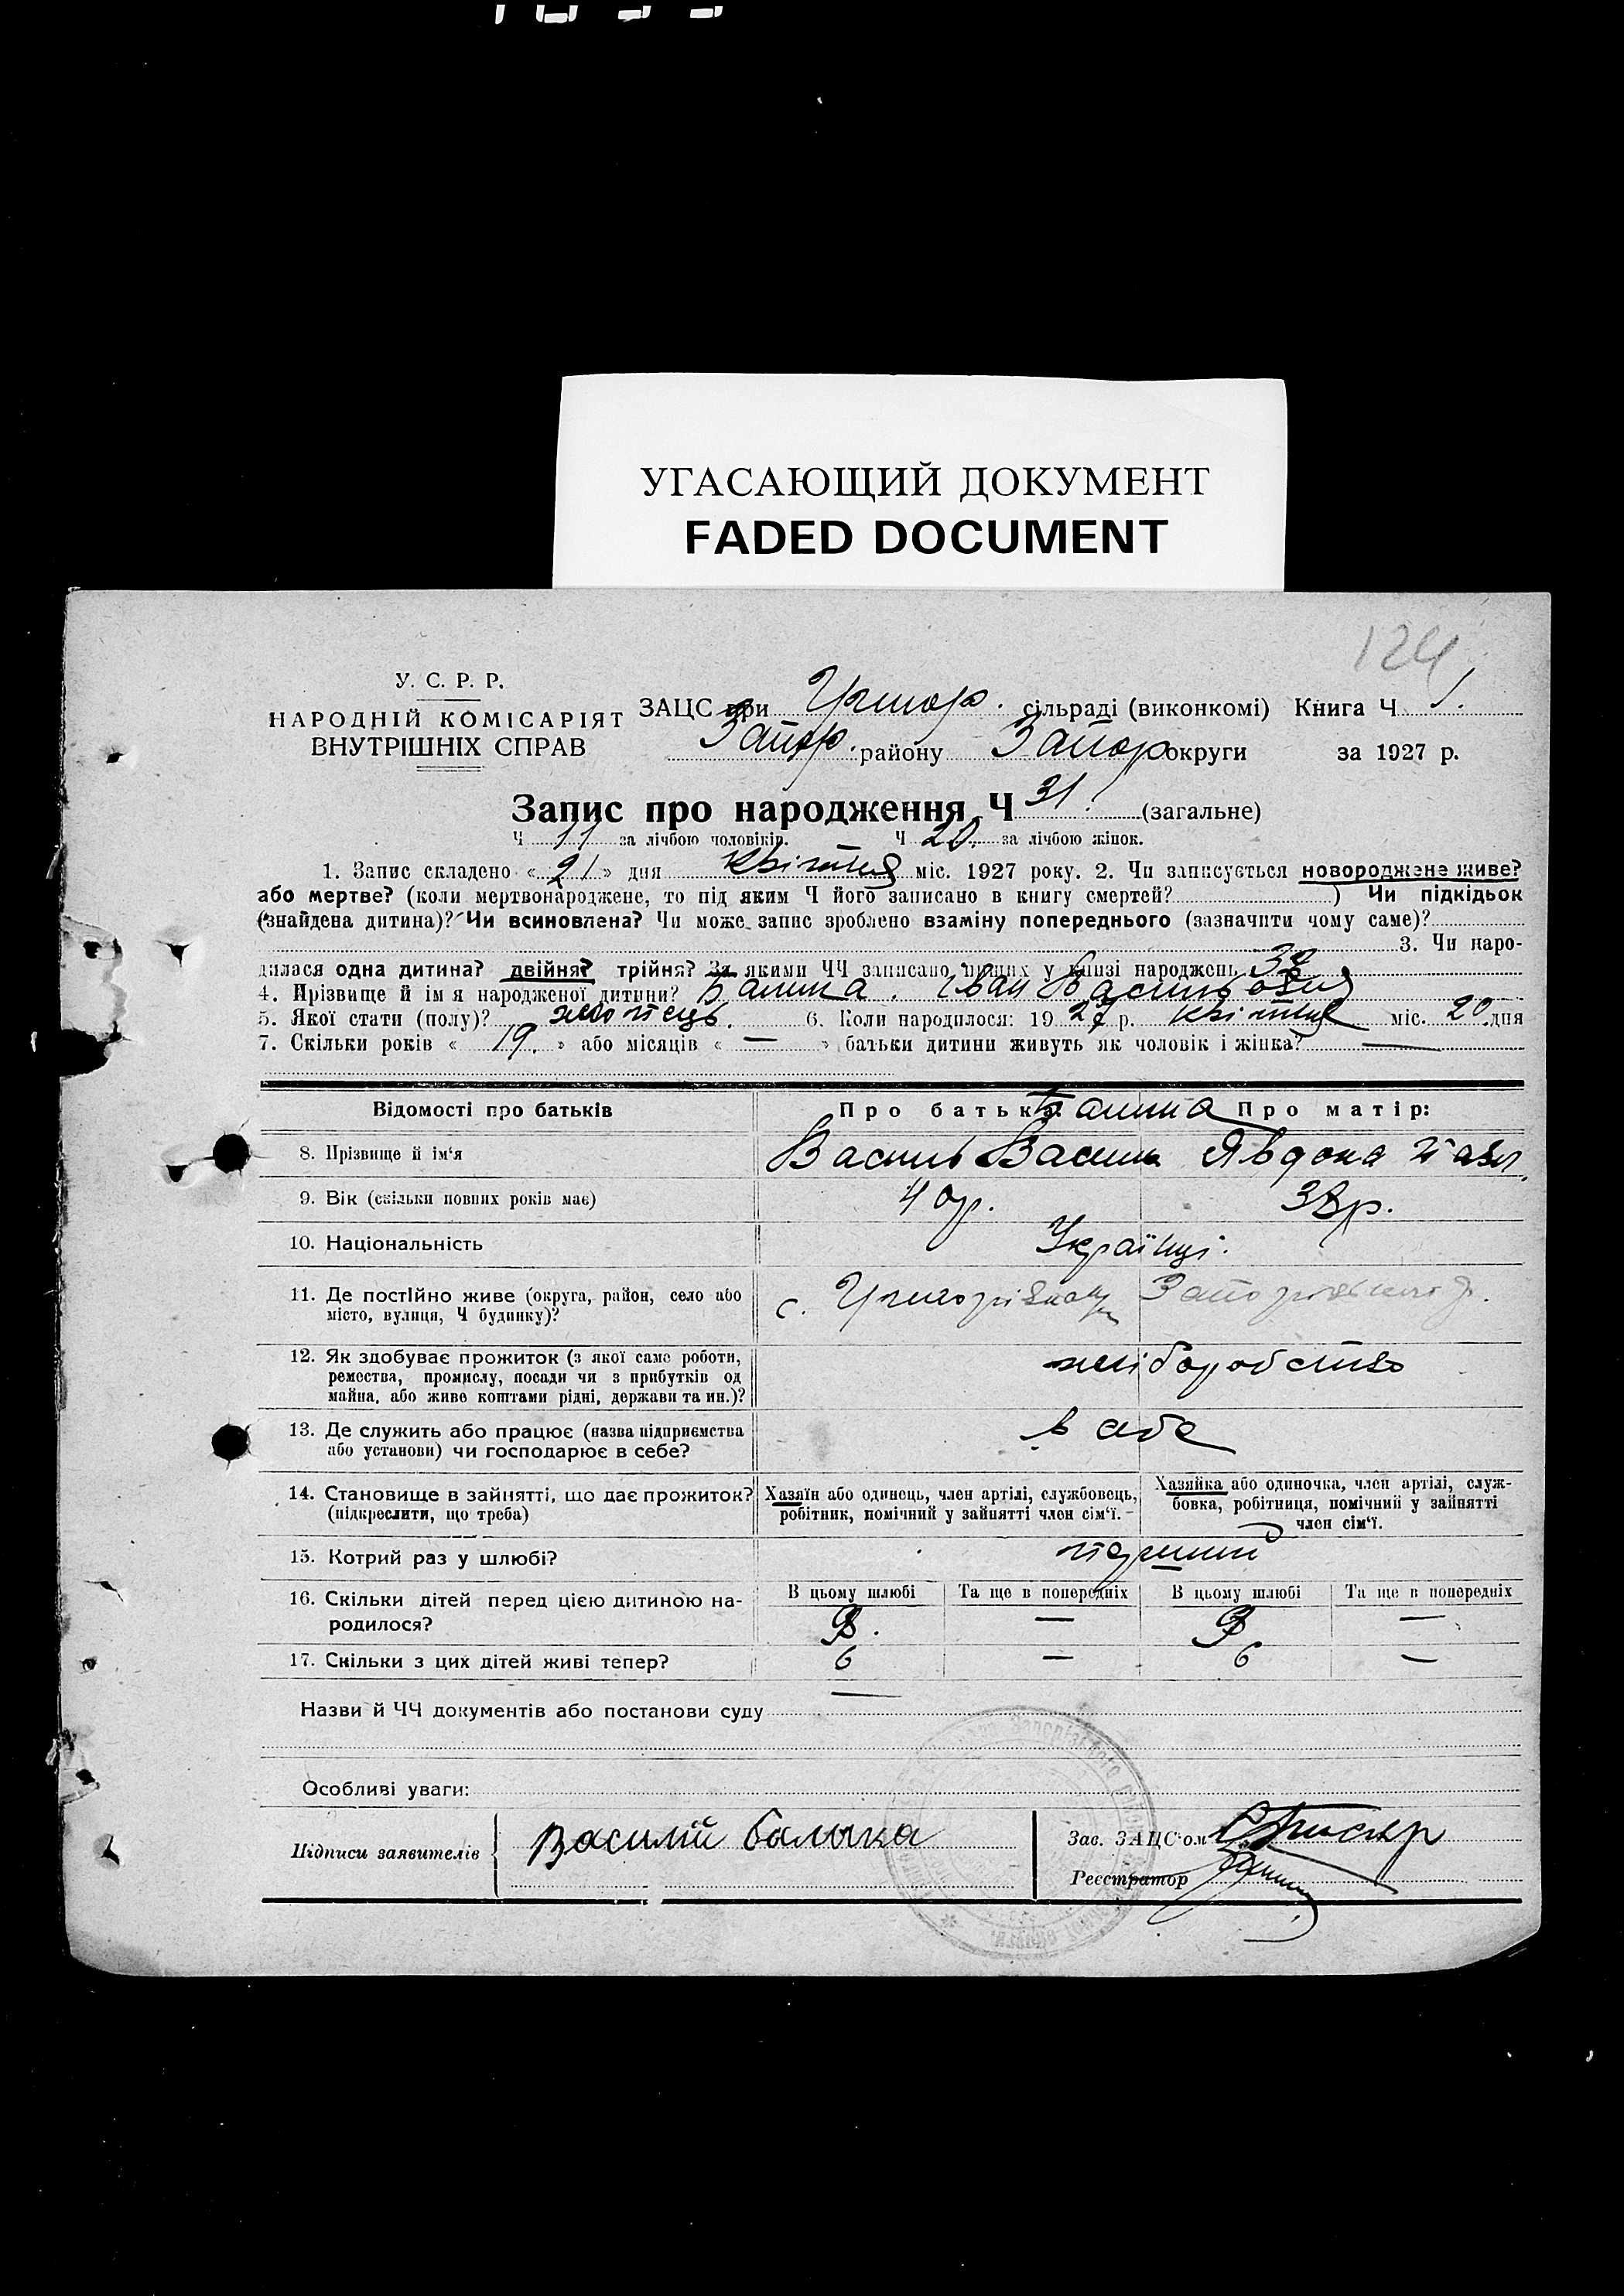 УГАСАЮЩИЙ ДОКУМЕНТ
FADED DOCUMENT
124
У. С. Р. Р.
НАРОДНІЙ КОМІСАРІЯТ
ВНУТРІШНІХ СПРАВ
ЗАЦС при Григор. сільраді (виконкомі) Книга Ч 1.
Запор. району Запор округи за 1927 р.
Запис про народження Ч 31. (загальне)
Ч 11 за лічбою чоловіків. Ч 20. за лічбою жінок.
1. Запис складено «21» дня квітня міс. 1927 року. 2. Чи записується новороджене живе?
або мертве? (коли мертвонароджене, то під яким Ч його записано в книгу смертей? ) Чи підкідьок
(знайдена дитина)? Чи всиновлена? Чи може запис зроблено взаміну попереднього (зазначити чому саме)?
3. Чи наро-
дилася одна дитина? двійня? трійня? За якими ЧЧ записано инших у книзі народжень 32
4. Прізвище й ім'я народженої дитини? Балика. Іван Васильович
5. Якої стати (полу)? хлопець. 6. Коли народилося: 1927 р. квітня міс. 20 дня
7. Скільки років «19.» або місяців «—» батьки дитини живуть як чоловік і жінка? —
Відомості про батьків Про батька: Балика Про матір:
8. Прізвище й ім'я Василь Васильов Явдоха Павл.
9. Вік (скільки повних років має) 40р. 38р.
10. Національність Українці.
11. Де постійно живе (округа, район, село або
місто, вулиця, Ч будинку)? с. Григорівка Запорізького р.
12. Як здобуває прожиток (з якої саме роботи,
ремества, промислу, посади чи з прибутків од
майна, або живе коштами рідні, держави та ин.)? хліборобство
13. Де служить або працює (назва підприємства
або установи) чи господарює в себе? в себе
14. Становище в зайнятті, що дає прожиток?
(підкреслити, що треба)
Хазяїн або одинець, член артілі, службовець,
робітник, помічний у зайнятті член сім'ї.
Хазяйка або одиночка, член артілі, служ-
бовка, робітниця, помічний у зайнятті
член сім'ї.
15. Котрий раз у шлюбі? перший
16. Скільки дітей перед цією дитиною на-
родилося?
В цьому шлюбі Та ще в попередніх В цьому шлюбі Та ще в попередніх
— —
17. Скільки з цих дітей живі тепер? 6 — 6 —
Назви й ЧЧ документів або постанови суду —
Особливі уваги:
Підписи заявителів Василій балыка
Зав. ЗАЦС'ом
Реєстратор